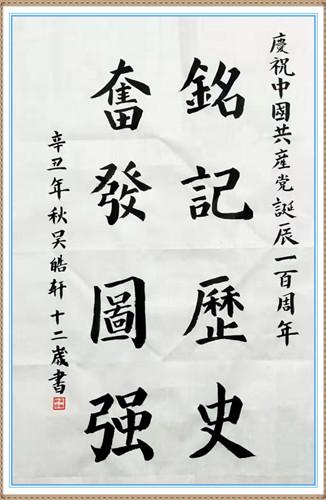 慶祝中國共産党誕辰一百周年
銘記歷史
奮發圖强
辛丑年秋吴皓軒十二歲書